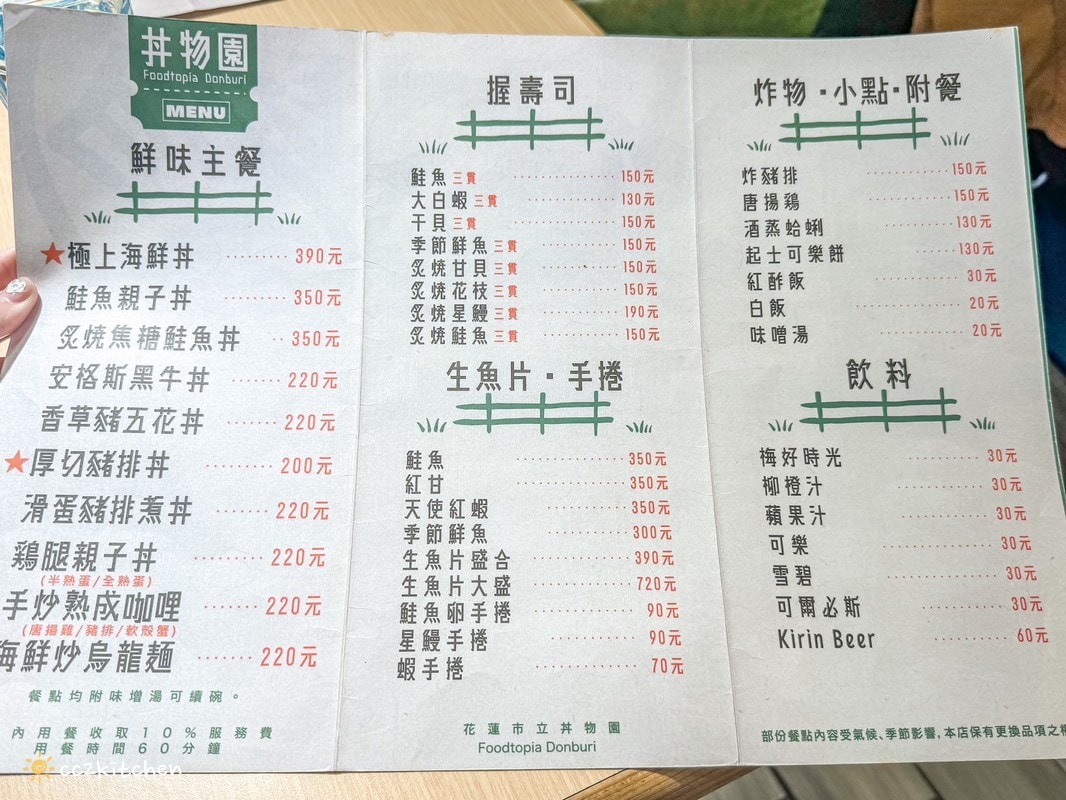 丼物園
Foodtopia Donburi
MENU
鮮味主餐
★極上海鮮丼 ········ 390元
鮭魚親子丼 ········ 350元
炙燒焦糖鮭魚丼 ·· 350元
安格斯黑牛丼 ······ 220元
香草豬五花丼 ······ 220元
★厚切豬排丼 ········ 200元
滑蛋豬排煮丼 ······ 220元
鶏腿親子丼 ········ 220元
(半熟蛋/全熟蛋)
手炒熟成咖哩 ········ 220元
(唐揚雞/豬排/軟殼蟹)
海鮮炒烏龍麵 ······ 220元
餐點均附味增湯可續碗。
內用餐收取10%服務費
用餐時間60分鐘
握壽司
鮭魚三貫 ········ 150元
大白蝦三貫 ········ 130元
干貝三貫 ········ 150元
季節鮮魚三貫 ········ 150元
炙燒甘貝三貫 ········ 150元
炙燒花枝三貫 ········ 150元
炙燒星鰻三貫 ········ 190元
炙燒鮭魚三貫 ········ 150元
生魚片·手捲
鮭魚 ········ 350元
紅甘 ········ 350元
天使紅蝦 ········ 350元
季節鮮魚 ········ 300元
生魚片盛合 ········ 390元
生魚片大盛 ········ 720元
鮭魚卵手捲 ········ 90元
星鰻手捲 ········ 90元
蝦手捲 ········ 70元
花蓮市立丼物園
Foodtopia Donburi
炸物·小點·附餐
炸豬排 ········ 150元
唐揚鶏 ········ 150元
酒蒸蛤蜊 ········ 130元
起士可樂餅 ········ 130元
紅酢飯 ········ 30元
白飯 ········ 20元
味噌湯 ········ 20元
飲料
梅好時光 ········ 30元
柳橙汁 ········ 30元
蘋果汁 ········ 30元
可樂 ········ 30元
雪碧 ········ 30元
可爾必斯 ········ 30元
Kirin Beer ········ 60元
部份餐點內容受氣候、季節影響,本店保有更換品項之
cc2kitchen